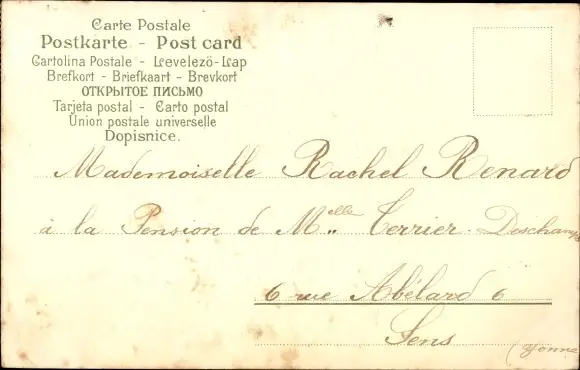 Carte Postale
Postkarte - Post card
Cartolina Postale - Levelező-Lap
Brefkort - Briefkaart - Brevkort
ОТКРЫТОЕ ПИСЬМО
Tarjeta postal - Carto postal
Union postale universelle
Dopisnice.
Mademoiselle Rachel Renard
à la Pension de Melle Terrier-Deschamps
6 rue Abélard 6
Sens
(Yonne